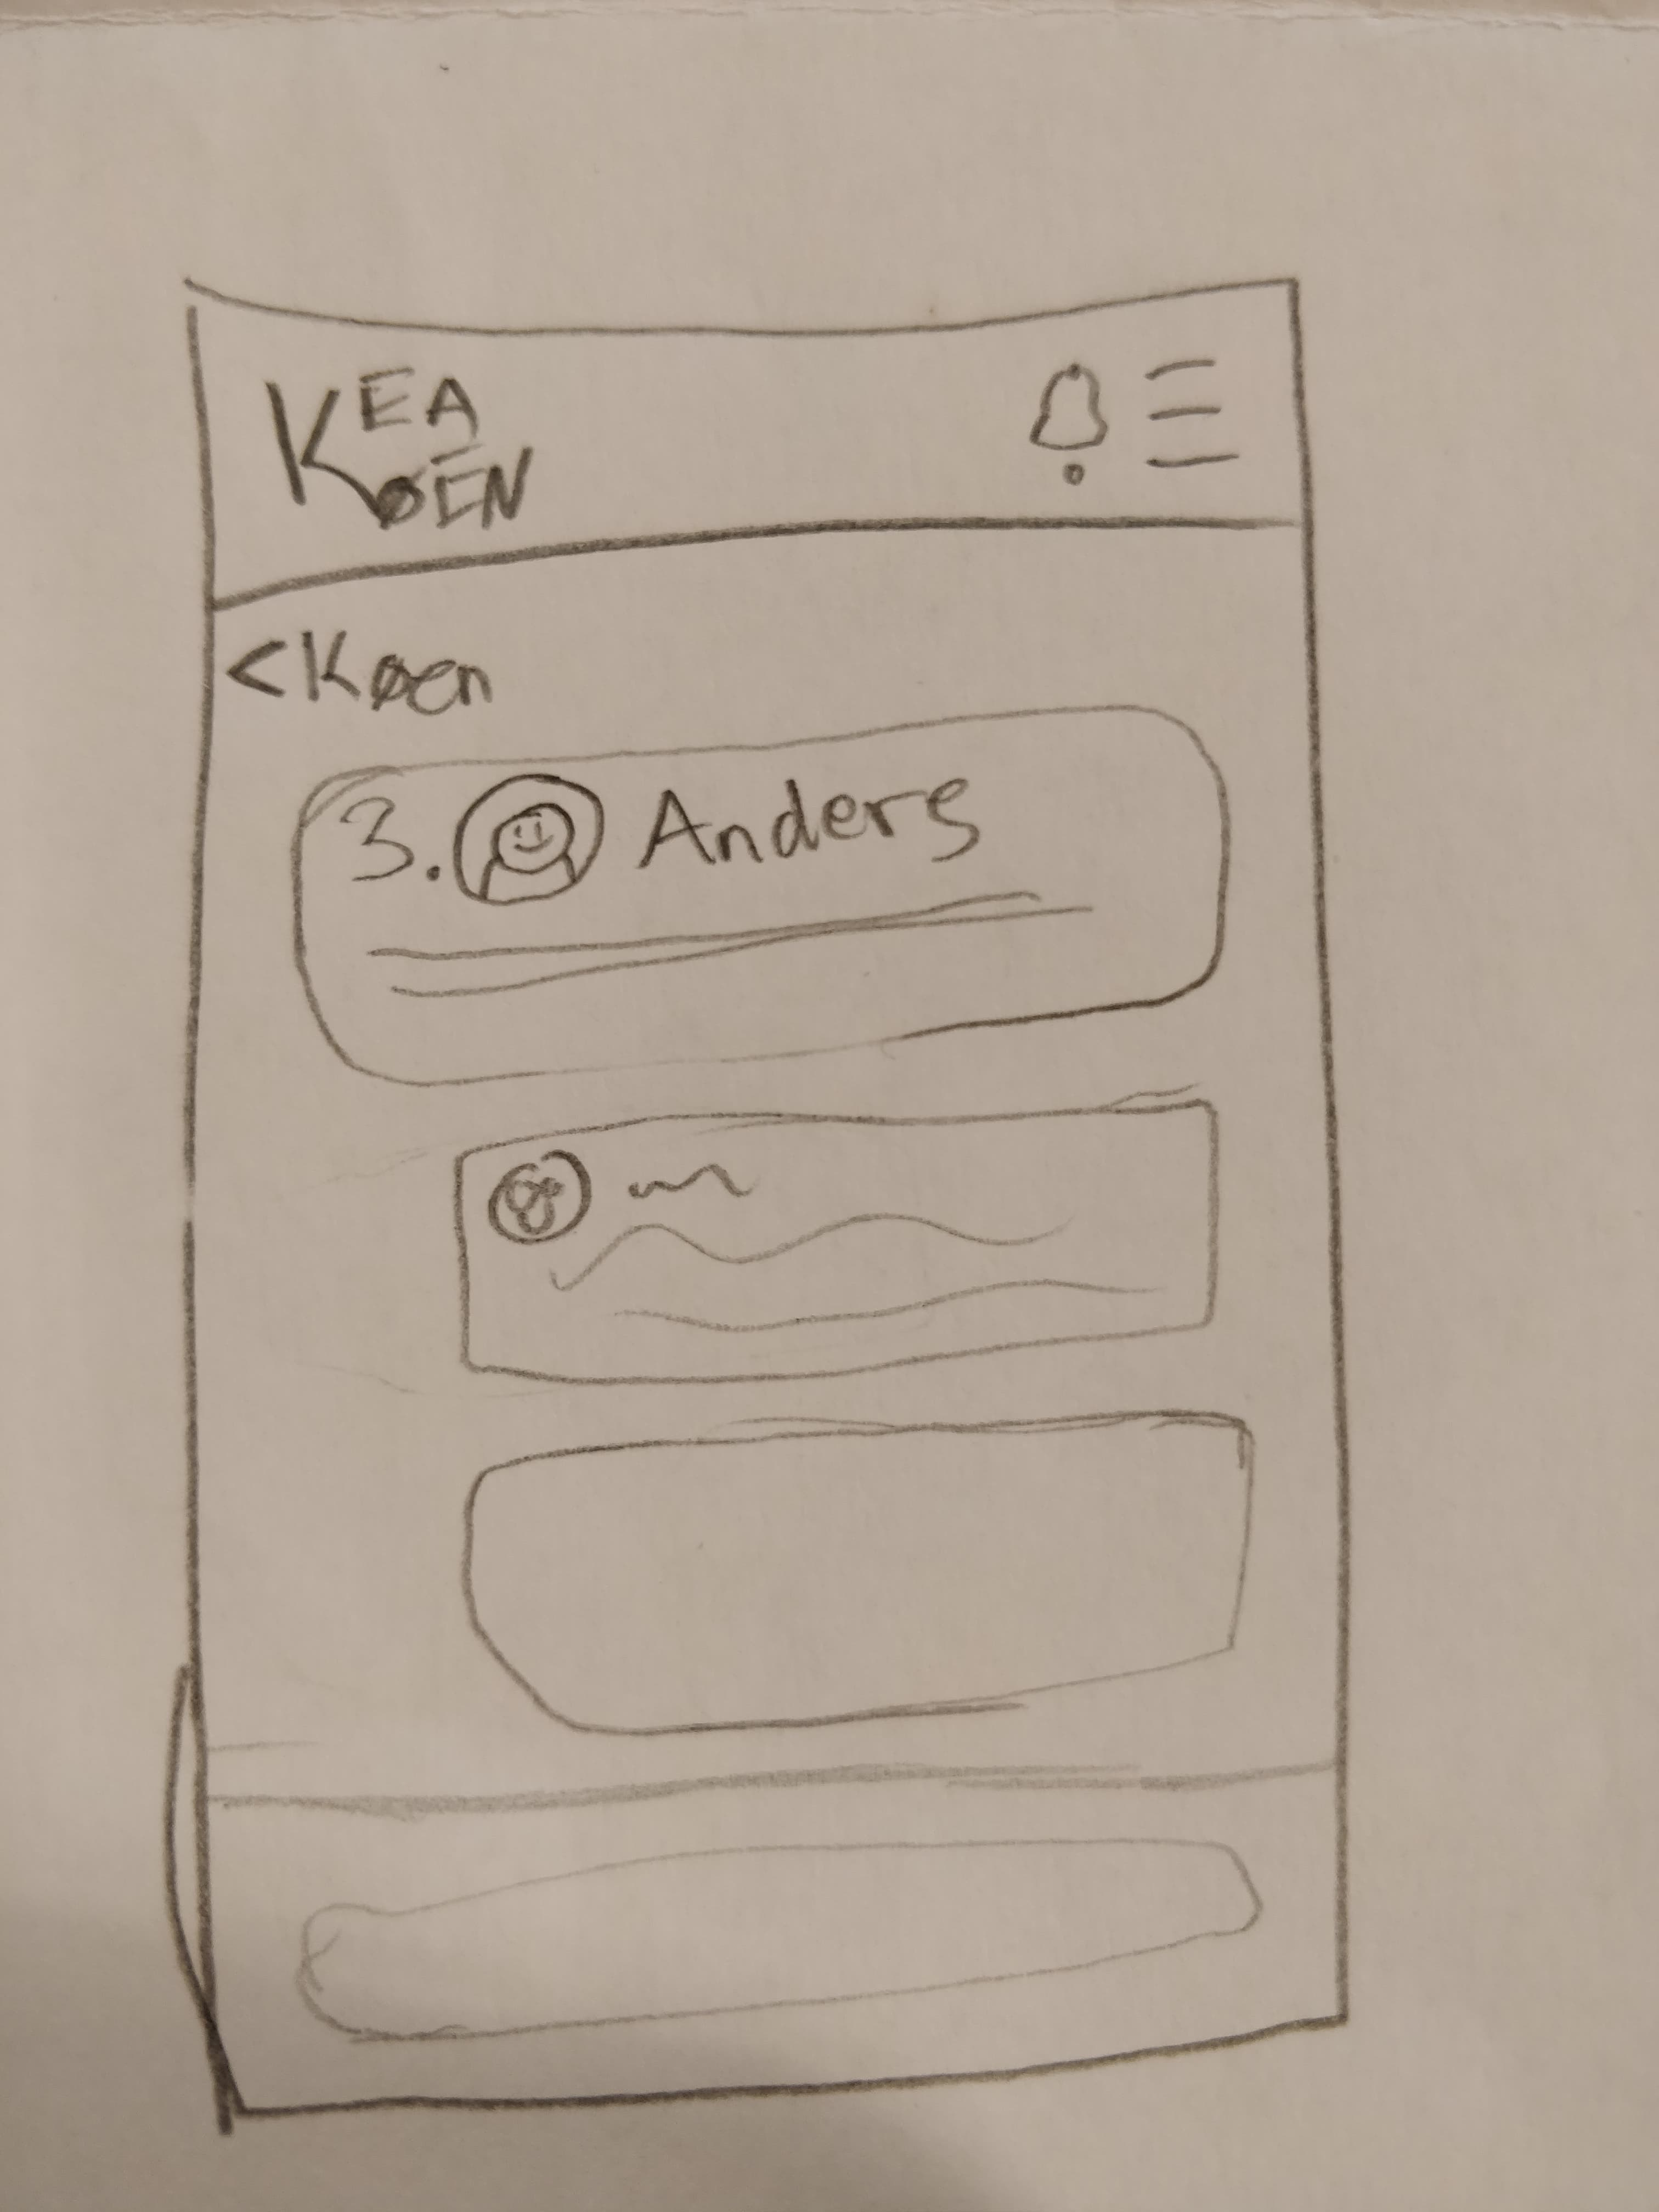 KEA
KØEN
< Køen
3. Anders